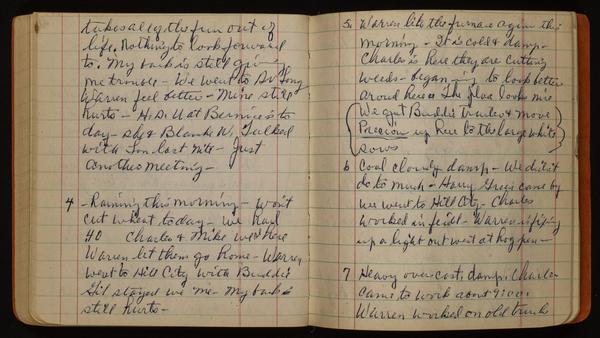 takes all of the fun out of
life. Nothing to look forward
to. My back is still giving
me trouble - We went to Dr Long
Warren feel better - Mine still
hurts - H.D.U at Bernice's to
day - She & Blanche W. Talked
with Tom last Nite - Just
another meeting -
4 - Raining this morning - won't
cut wheat today - we had
40 Charles & Mike were here
Warren let them go home - Warren
went to Hill City with Buddie
Gil stayed w me - My back is
still hurts -
5 Warren lite the furnace again this
morning - It is cold & damp -
Charles is here they are cutting
weeds - began ing to look better
around here The place looks nice
We got Buddie's truck & move
up here to the large white
sows.
6 Cool cloudy damp - We didn't
do to much - Harry Gregg came by
we went to Hill City - Charles
worked in field - Warren is fixing
up a light out west at hog pen -
7 Heavy over cast, damp, Charles
came to work about 9:00.
Warren worked on old truck